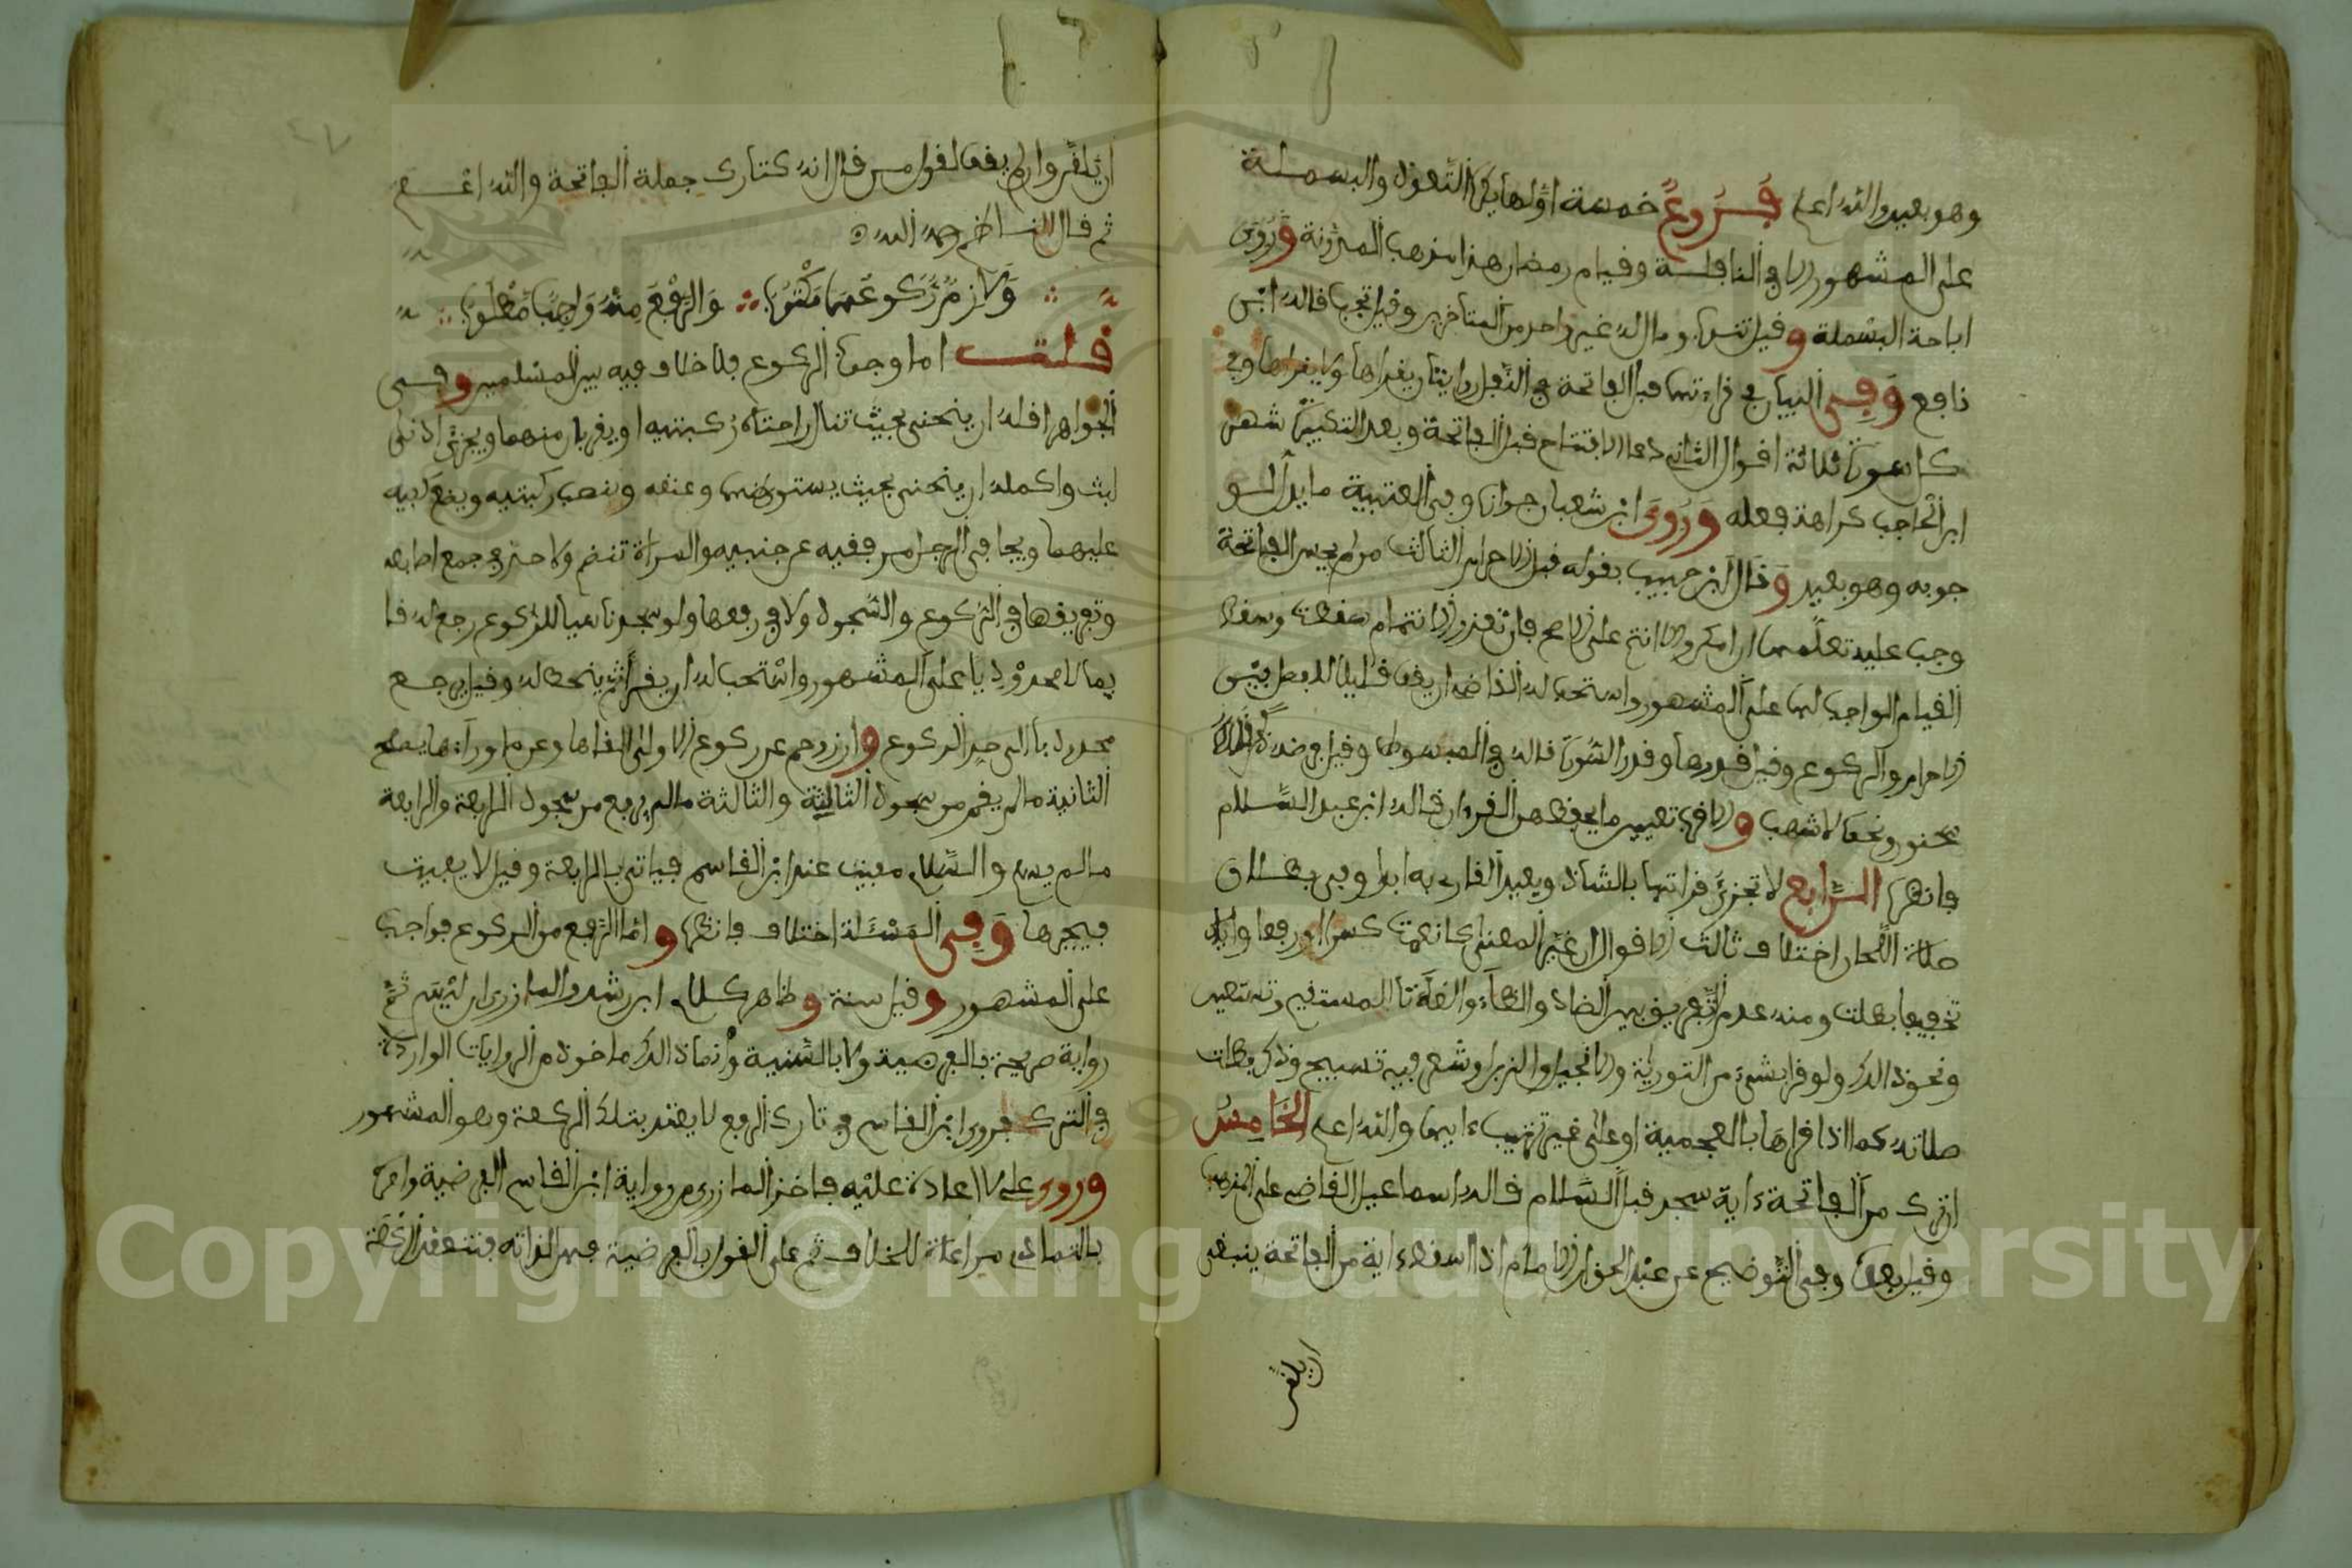 وهو بعيد والله اعلم فروع خمسة اولها يكره التعوذ والبسملة
على المشهور الا في النافلة وقيام رمضان هذا مذهب المدونة وروي
اباحة البسملة وقيل تندب ومال له غير واحد من المتأخرين وقيل تجب قاله ابن
نافع وفي البيان في قراءتها قبل الفاتحة في النفل روايتان يقرأها ولا يقرأها وفي
كل سورة ثلاثة اقوال الثاني دعاء الافتتاح قبل الفاتحة وبعد التكبير شهر
ابن الحاجب كراهة فعله وروى ابن شعبان جوازه وفي العتبية ما يدل لو
جوبه وهو بعيد وقال ابن حبيب يقوله قبل الاحرام الثالث من لم يحسن الفاتحة
وجب عليه تعلمها ان امكن والا ائتم على الاصح فان تعذر الائتمام سقطت وسقط
القيام الواجب لها على المشهور واستحب له القاضي ان يقف قليلا للفصل بين
الاحرام والركوع وقيل قدرها وقدر السورة قاله في المبسوط وقيل يعوضه
سحنون ونحوه لاشهب والاقرب تعيين ما يحفظ من القرءان قاله ابن عبد السلام
فانظره الرابع لا تجزئ قراءتها بالشاذ ويعيد القارئ به ابدا وفي بطلان
صلاة اللحان اختلاف ثالث الاقوال ان غير المعنى كانعمت كسرا ورفعا والا
تخفيفا بطلت ومنه عدم التفريق بين الضاد والظاء والظاء تا المستقيم ونستعين
ونحو ذلك ولو قرا بشيء من التورية والانجيل والزبر او شعر فيه تسبيح وذكر بطلت
صلاته كما اذا قراها بالعجمية او على غير ترتيب ءايها والله اعلم الخامس
ان ترك من الفاتحة ءاية سجد قبل السلام قاله اسماعيل القاضي على المذهب
وقيل بعده وفي التوضيح عن عبد الحق ان الامام اذا اسقط ءاية من الفاتحة ينبغي
ان يلقن
ان يلقن وان لم يقف لقول من قال انه كتارك جملة الفاتحة والله اعلم
ثم قال الناظم رحمه الله
ولازم ركوعها مكتوب والرفع منه واجب مطلوب
قلت اما وجوب الركوع فلا خلاف فيه بين المسلمين وفي
الجواهر اقله ان ينحني بحيث تنال راحتاه ركبتيه او يقربان منهما ويجزئ ادنى
لبث واكمله ان ينحني بحيث يستوي ظهره وعنقه وينصب ركبتيه ويضع كفيه
عليهما ويجافي الرجل مرفقيه عن جنبيه والمرأة تنضم ولا حد في جمع اصابعه
وتفريقها في الركوع والسجود ولا في رفعها ولو سجد ناسيا للركوع رجع له قا
يما لا محدودبا على المشهور واستحب له ان يقرأ ثم ينحط له وقيل يرجع
محدودبا الى حد الركوع وان زوحم عن ركوع الاولى الغاها وعن ما وراءها يصلح
الثانية ما لم يقم من سجود الثالثة والثالثة ما لم يرفع من سجود الرابعة والرابعة
ما لم يسلم والسلام مفيت عند ابن القاسم فياتي بالرابعة وقيل لا يفيت
فيجبرها وفي المسئلة اختلاف فانظره واما الرفع من الركوع فواجب
على المشهور وقيل سنة وظاهر كلام ابن رشد والمازري ان ليس ثم
رواية صريحة بالفرضية ولا بالسنية وانما ذلك ماخوذ من الروايات الواردة
في الترك فروى ابن القاسم في تارك الرفع لا يعتد بتلك الركعة وهو المشهور
وروى علي لا اعادة عليه فاخذ المازري من رواية ابن القاسم الفرضية وامره
بالتمادي مراعاة للخلاف ثم على القول بالفرضية فهل لذاته فتنعقد الركعة